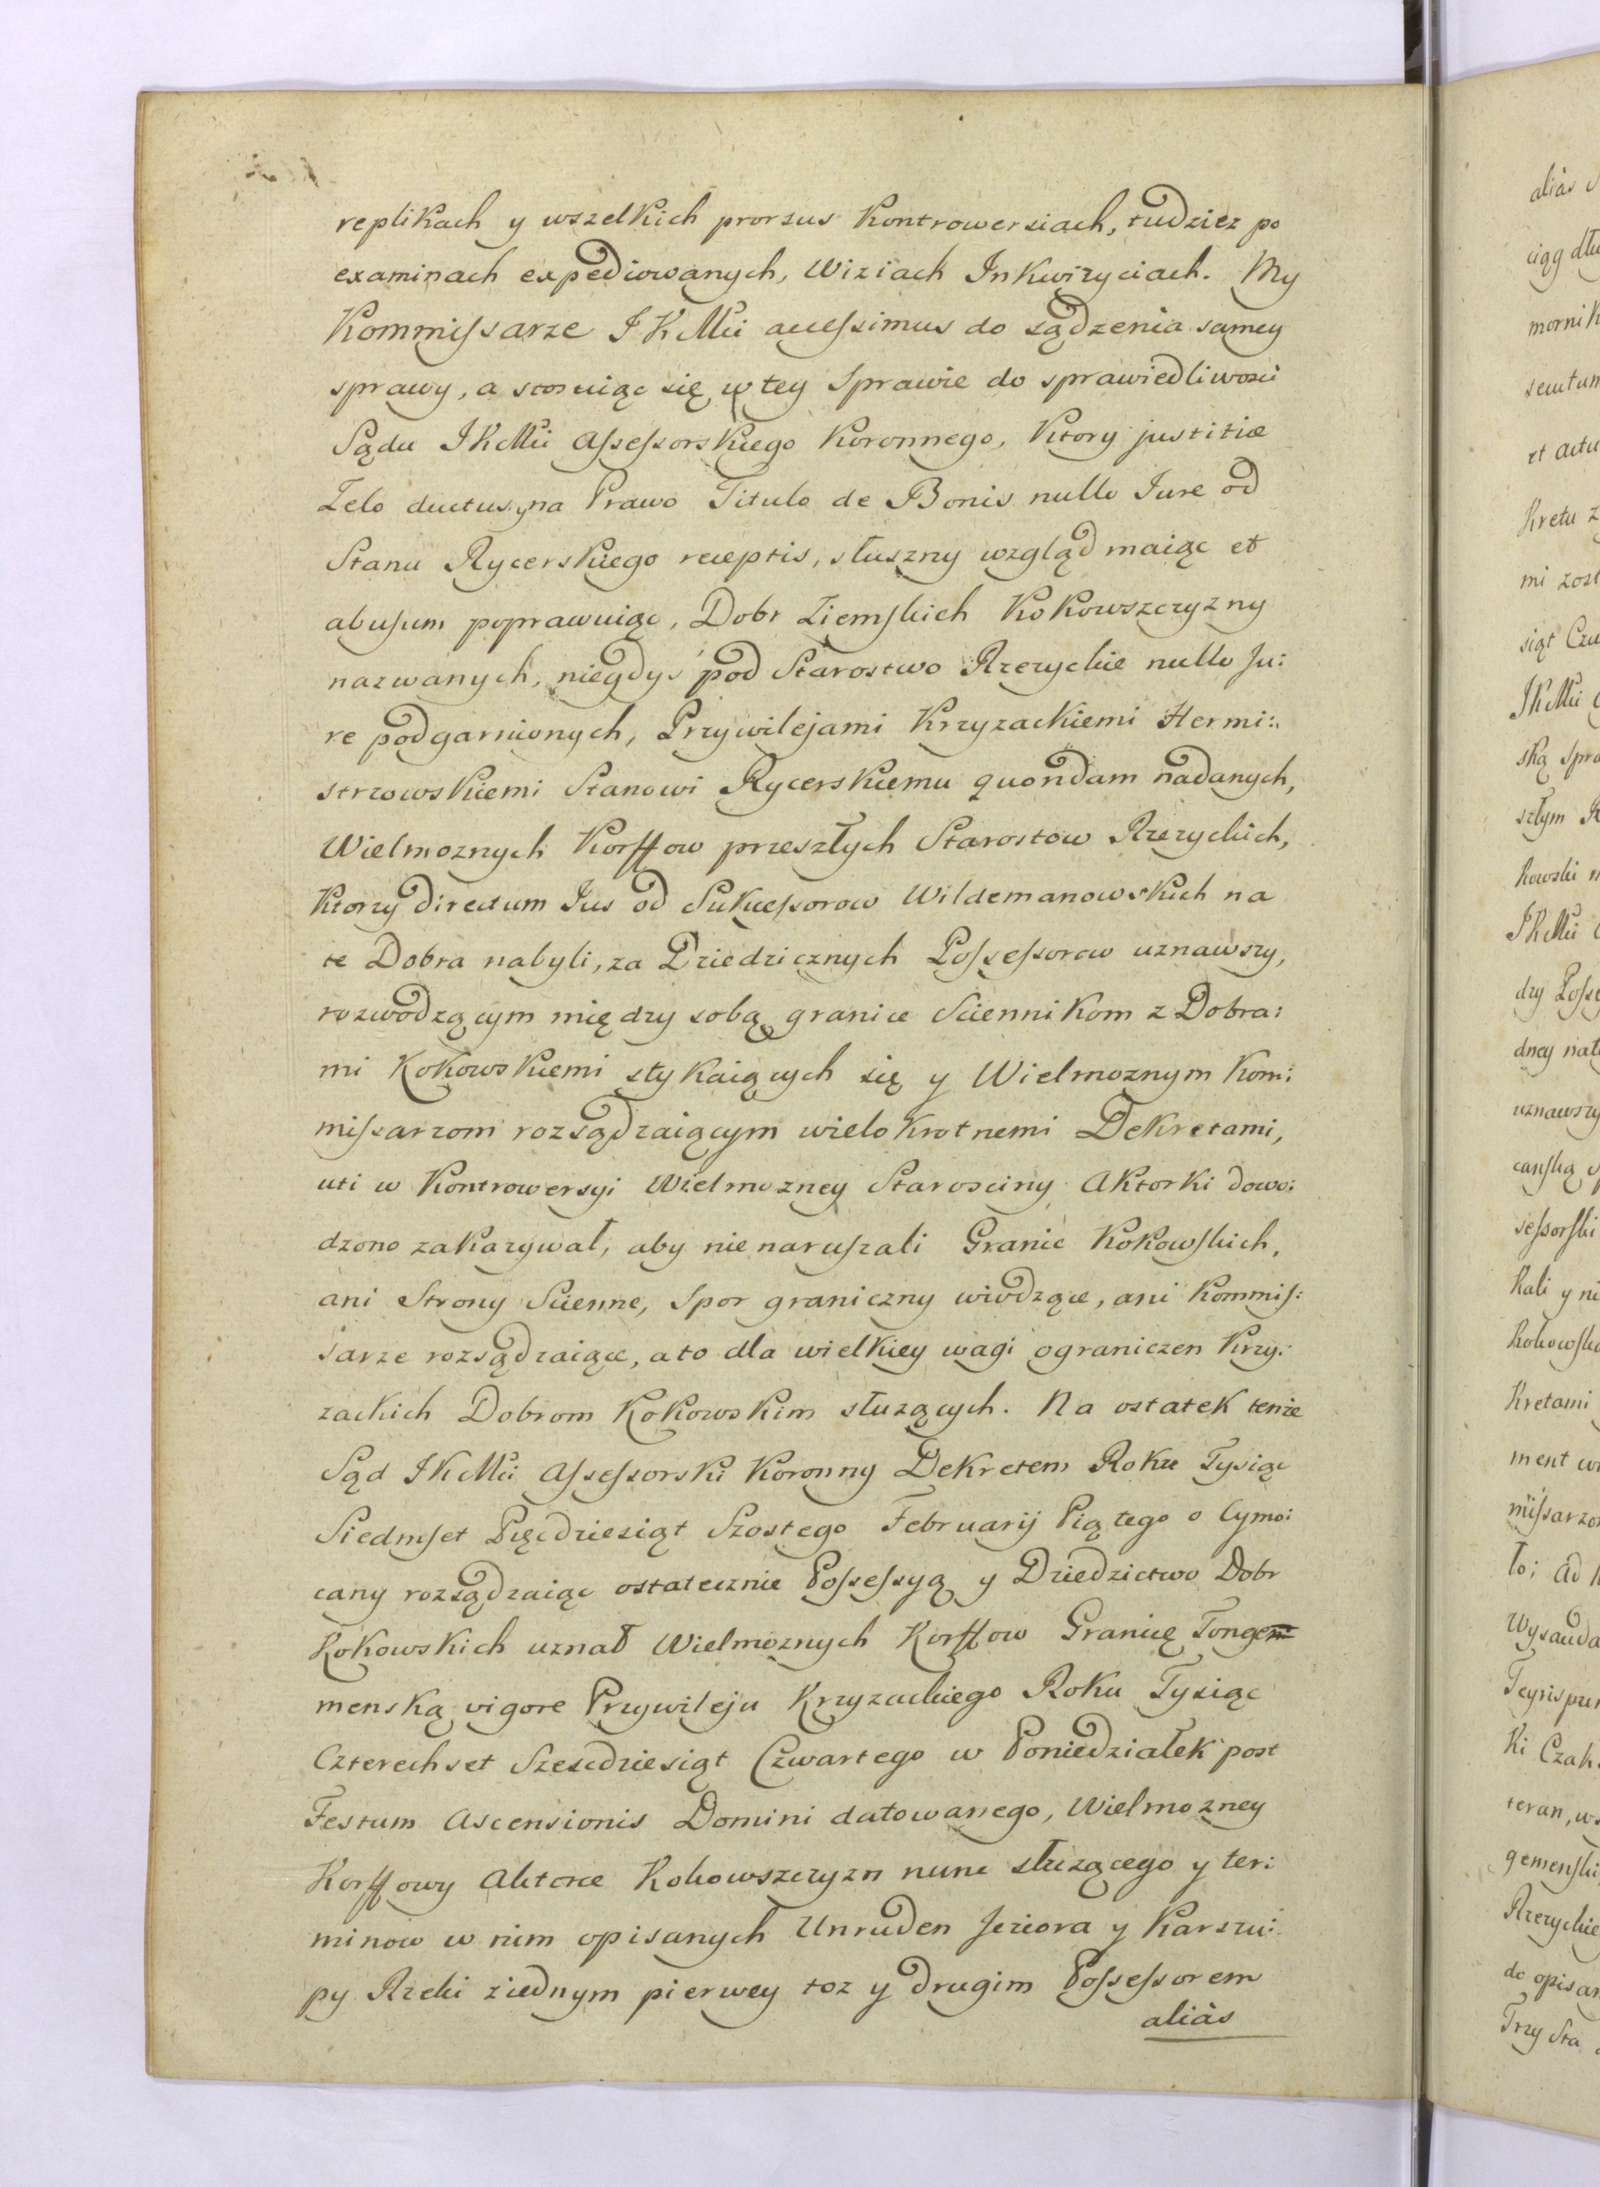 replikach y wszelkich prorsus Kontrowersiach, tudziez po
examinach expediowanych, Wiziach Inkwizyciach. My
Kommiſsarze JKMci acceſsimus do sądzenia samey
sprawy, a stosuiąc się w tey Sprawie do sprawiedliwosci
Sądu JKMci Aſseſsorskiego Koronnego, Ktory justitiæ
Zelo ductus, na Prawo Titulo de Bonis nullo Jure od
Stanu Rycerskiego receptis, słuszny wzgląd maiąc et
abusum poprawuiąc, Dobr Ziemſkich Kokowszczyzny
nazwanych, niegdyś pod Starostwo Rzezyckie nullo Ju:
re podgarnionych, Przywilejami Krzyzackiemi Hermi:
strzowskiemi Stanowi Rycerskiemu quondam nadanych,
Wielmoznych Korffow przeszłych Starostow Rzezyckich,
Ktorzy directum Jus od Sukceſsorow Wildemanowskich na
te Dobra nabyli, za Dziedzicznych Poſseſsorow uznawszy,
rozwodzącym między sobą granice Sciennikom z Dobra:
mi Kokowskiemi stykaiących się y Wielmoznym Kom:
miſsarzom rozsądzaiącym wielokrotnemi Dekretami,
uti w Kontrowersyi Wielmozney Starosciny Aktorki dowo:
dzono zakazywał, aby nie naruſzali Granic Kokowſkich,
ani Strony Scienne, Spor graniczny wiodzące, ani Kommiſ:
sarze rozsądzaiące, a to dla wielkiey wagi ograniczen Krzy:
zackich Dobrom Kokowskim słuzących. Na ostatek tenze
Sąd JKMci Aſseſsorski Koronny Dekretem Roku Tysiąc
Siedmſet Pięcdziesiąt Szostego Februarij Piątego o Cymo:
cany rozsądzaiąc ostatecznie Poſseſsyą y Dziedzictwo Dobr
Kokowskich uznał Wielmoznych Korffow Granicę Tongem
menską vigore Przywileju Krzyzackiego Roku Tysiąc
Czterechset Szescdziesiąt Czwartego w Poniedziałek post
Festum Ascensionis Domini datowanego, Wielmozney
Korffowy Aktorce Kokowszczyzn nunc słuzącego y ter:
minow w nim opisanych Unruden Jeziora y Karszu:
py Rzeki ziednym pierwey toz y drugim Poſseſsorem
aliàs